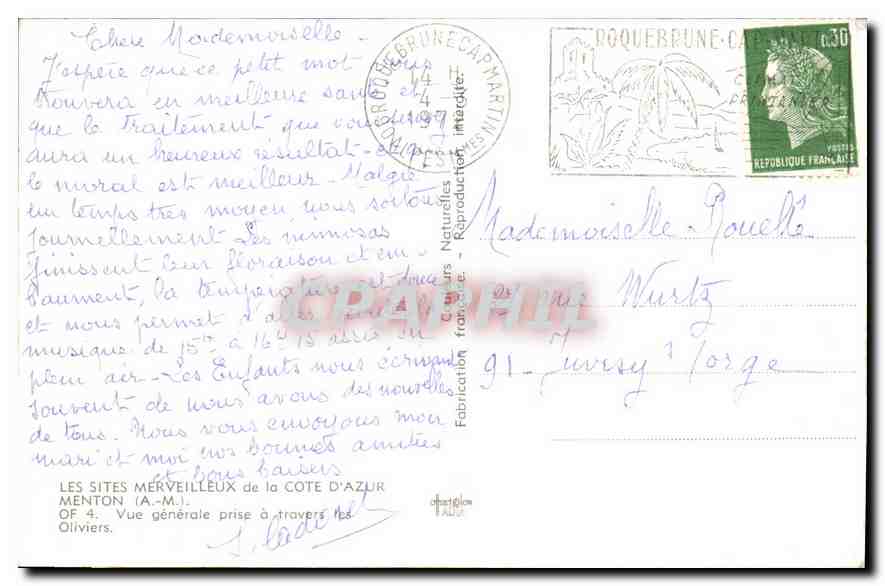 Chère Mademoiselle -
J'espère que ce petit mot vous
trouvera en meilleure santé et
que le traitement que vous
aura un heureux résultat - et
le moral est meilleur - Malgré
un temps très moyen nous sortons
journellement Les mimosas
finissent leur floraison et em
baument, la température est douce
et nous permet d'aller
musique de 15h à 16h15 assis en
plein air - Les Enfants nous écrivant
souvent de nous avons des nouvelles
de tous. Nous vous envoyons mon
mari et moi nos bonnes amitiés
et bons baisers
LES SITES MERVEILLEUX de la COTE D'AZUR
MENTON (A.-M.).
OF 4. Vue générale prise à travers les
Oliviers.
Fabrication française. - Reproduction interdite.
Couleurs Naturelles
ROQUEBRUNE CAP MARTIN
14 H
4
ALPES MMES
ROQUEBRUNE-CAP-MARTIN
CLIMAT
PRINTANIER
0,30
POSTES
REPUBLIQUE FRANÇAISE
Mademoiselle
rue Wurtz
91 - Juvisy s/orge
CPAPHIL